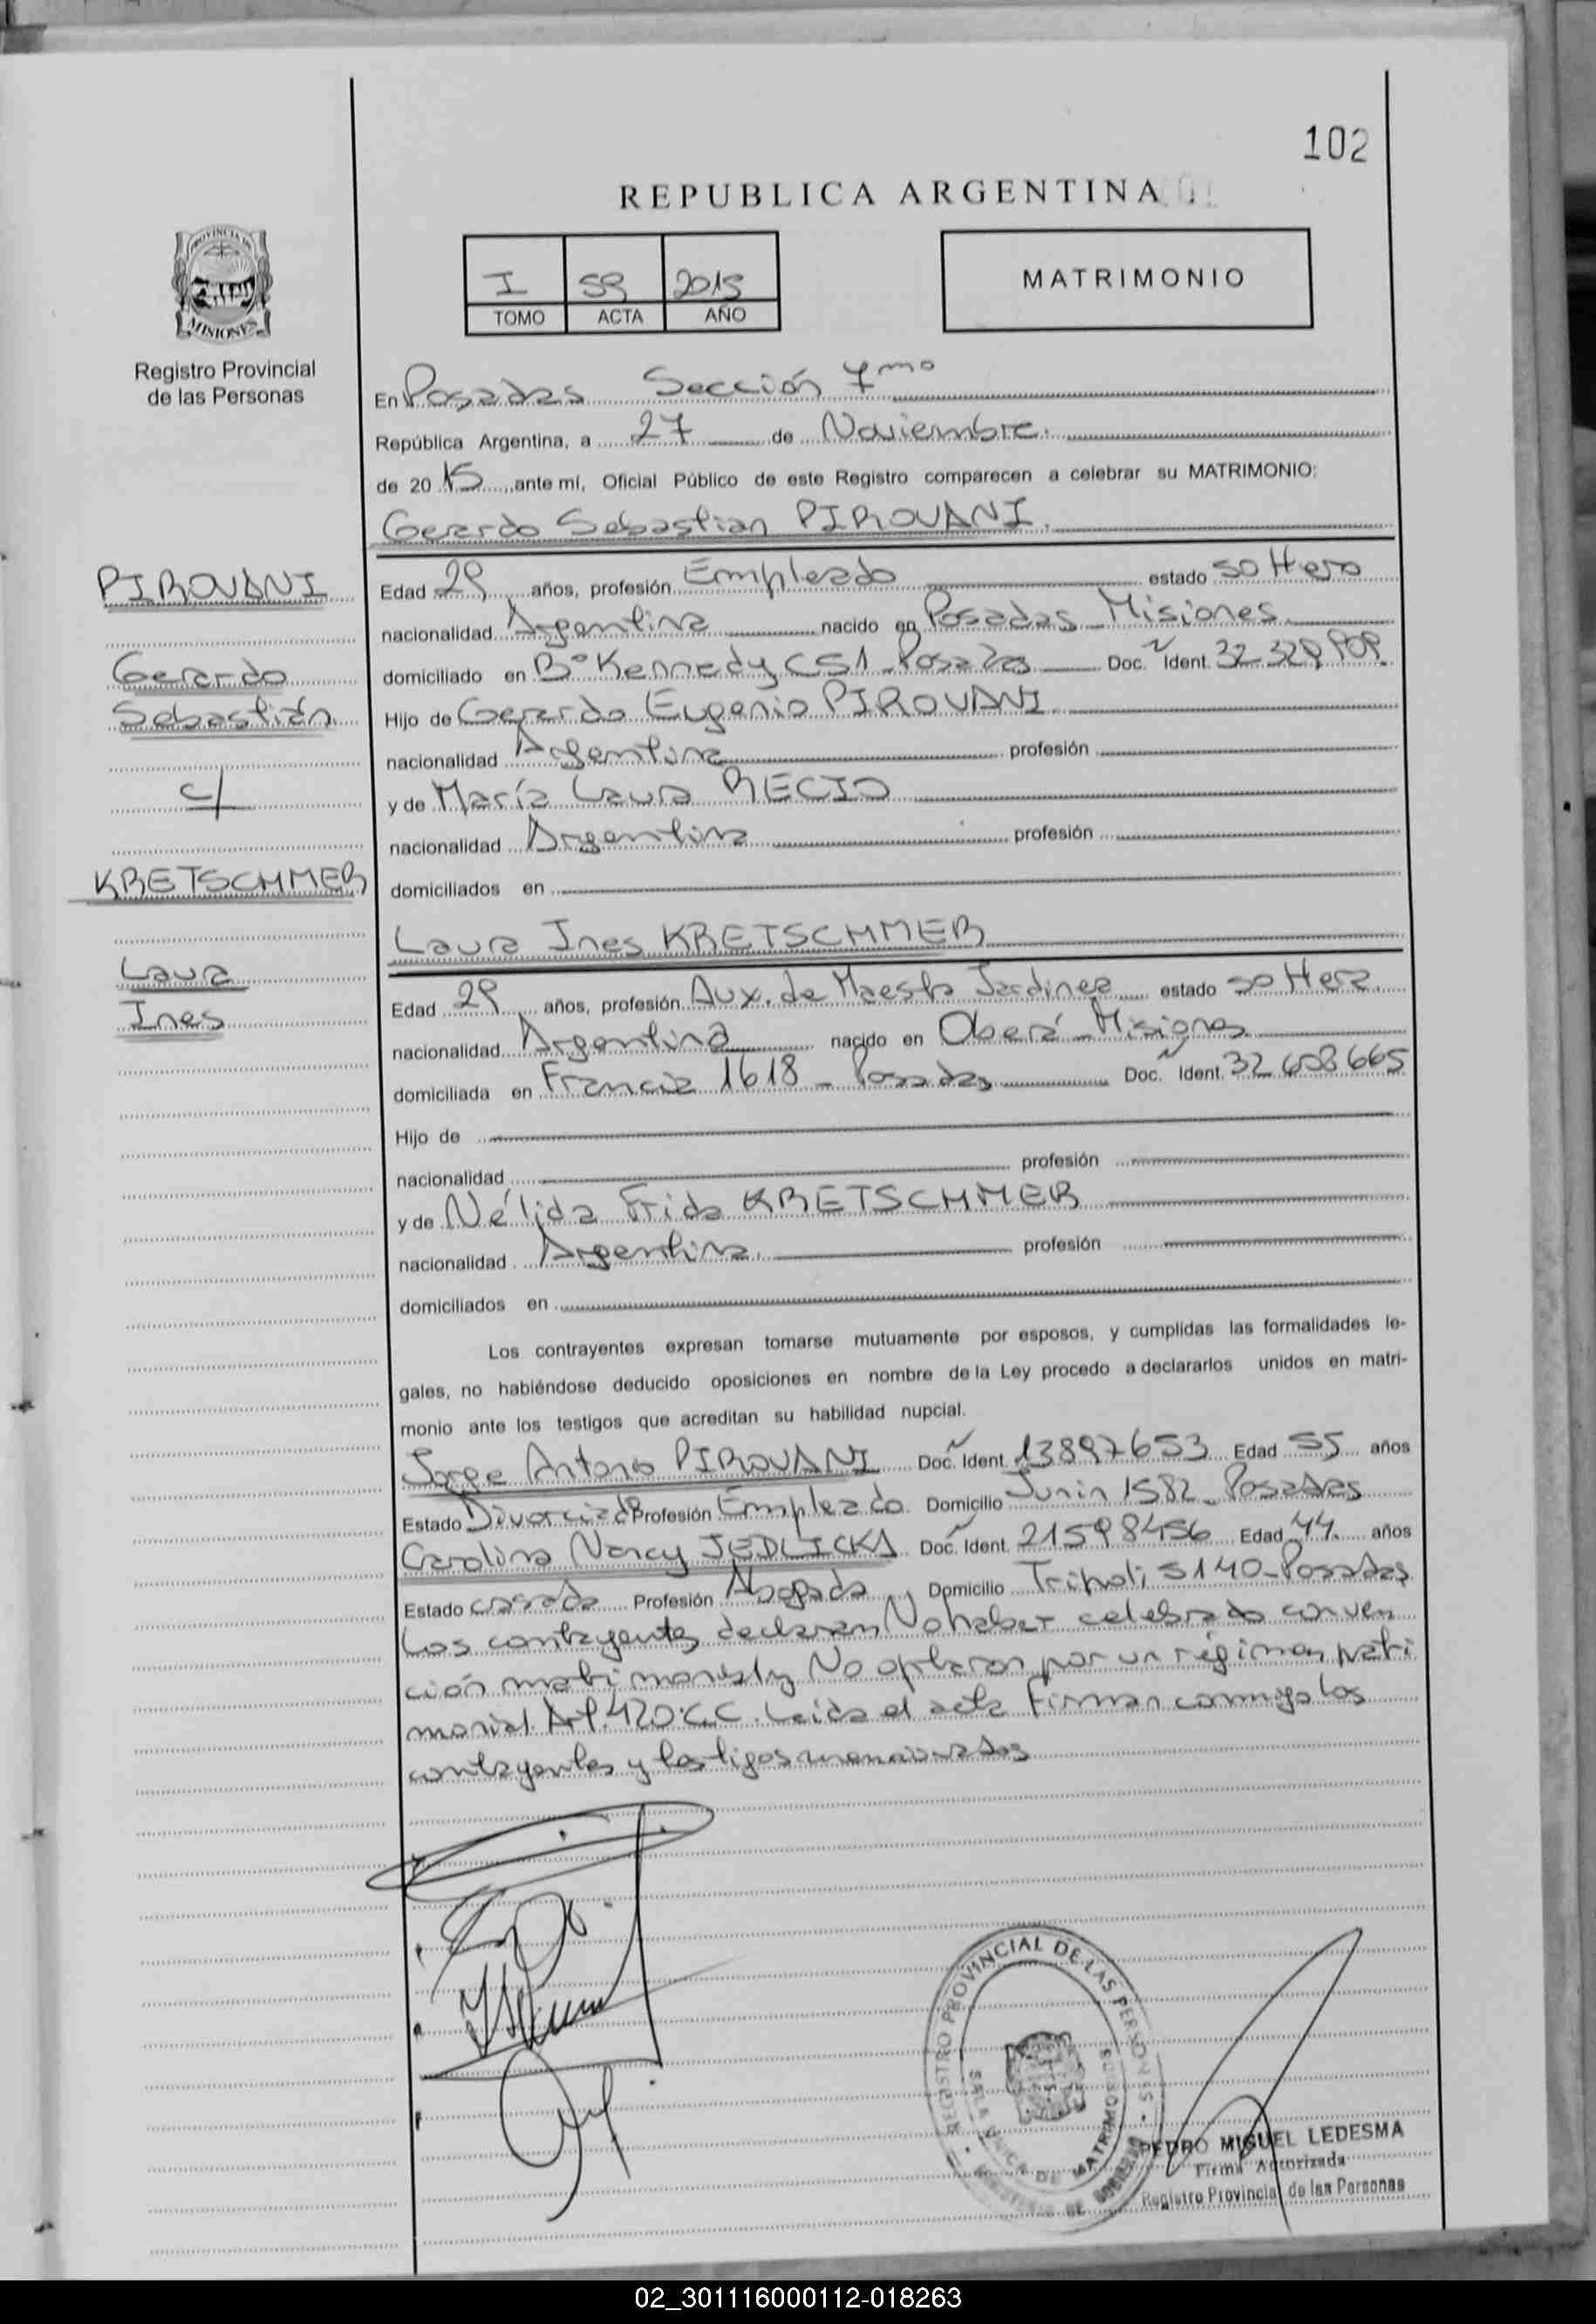 102
REPUBLICA ARGENTINA
I 59 2015
TOMO ACTA AÑO
MATRIMONIO
PROVINCIA DE
MISIONES
Registro Provincial
de las Personas
En Posadas Sección 7mo
República Argentina, a 27 de Noviembre.
de 20 15 ante mí, Oficial Público de este Registro comparecen a celebrar su MATRIMONIO:
Gerardo Sebastian PIROVANI.
PIROVANI
Gerardo
Sebastián
c/
KRETSCHMER
Laura
Ines
Edad 29 años, profesión Empleado estado soltero
nacionalidad Argentina nacido en Posadas Misiones
domiciliado en B° Kennedy C51 Posadas Doc. Ident. 32.329.909
Hijo de Gerardo Eugenio PIROVANI
nacionalidad Argentina profesión
y de María Laura RECIO
nacionalidad Argentina profesión
domiciliados en
Laura Ines KRETSCHMER
Edad 29 años, profesión Aux. de Maestra Jardinera estado soltera
nacionalidad Argentina nacido en Oberá - Misiones
domiciliada en Francia 1618 - Posadas Doc. Ident. 32.608665
Hijo de
nacionalidad profesión
y de Nélida Frida KRETSCHMER
nacionalidad Argentina profesión
domiciliados en
Los contrayentes expresan tomarse mutuamente por esposos, y cumplidas las formalidades le-
gales, no habiéndose deducido oposiciones en nombre de la Ley procedo a declararlos unidos en matri-
monio ante los testigos que acreditan su habilidad nupcial.
Jorge Antonio PIROVANI Doc. Ident. 13897653 Edad 55 años
Estado Divorciado Profesión Empleado Domicilio Junin 1582 - Posadas
Carolina Nancy JEDLICKA Doc. Ident. 21598456 Edad 44 años
Estado casada Profesión Abogada Domicilio Tripoli 5140 - Posadas
Los contrayentes declaran No haber celebrado conven
ción matrimonial y No optaron por un régimen patri
monial Art. 420 C.C. Leida el acta firman conmigo los
contrayentes y testigos mencionados
REGISTRO PROVINCIAL DE LAS PERSONAS
MATRIMONIOS
PEDRO MIGUEL LEDESMA
Firma Autorizada
Registro Provincial de las Personas
02_301116000112-018263